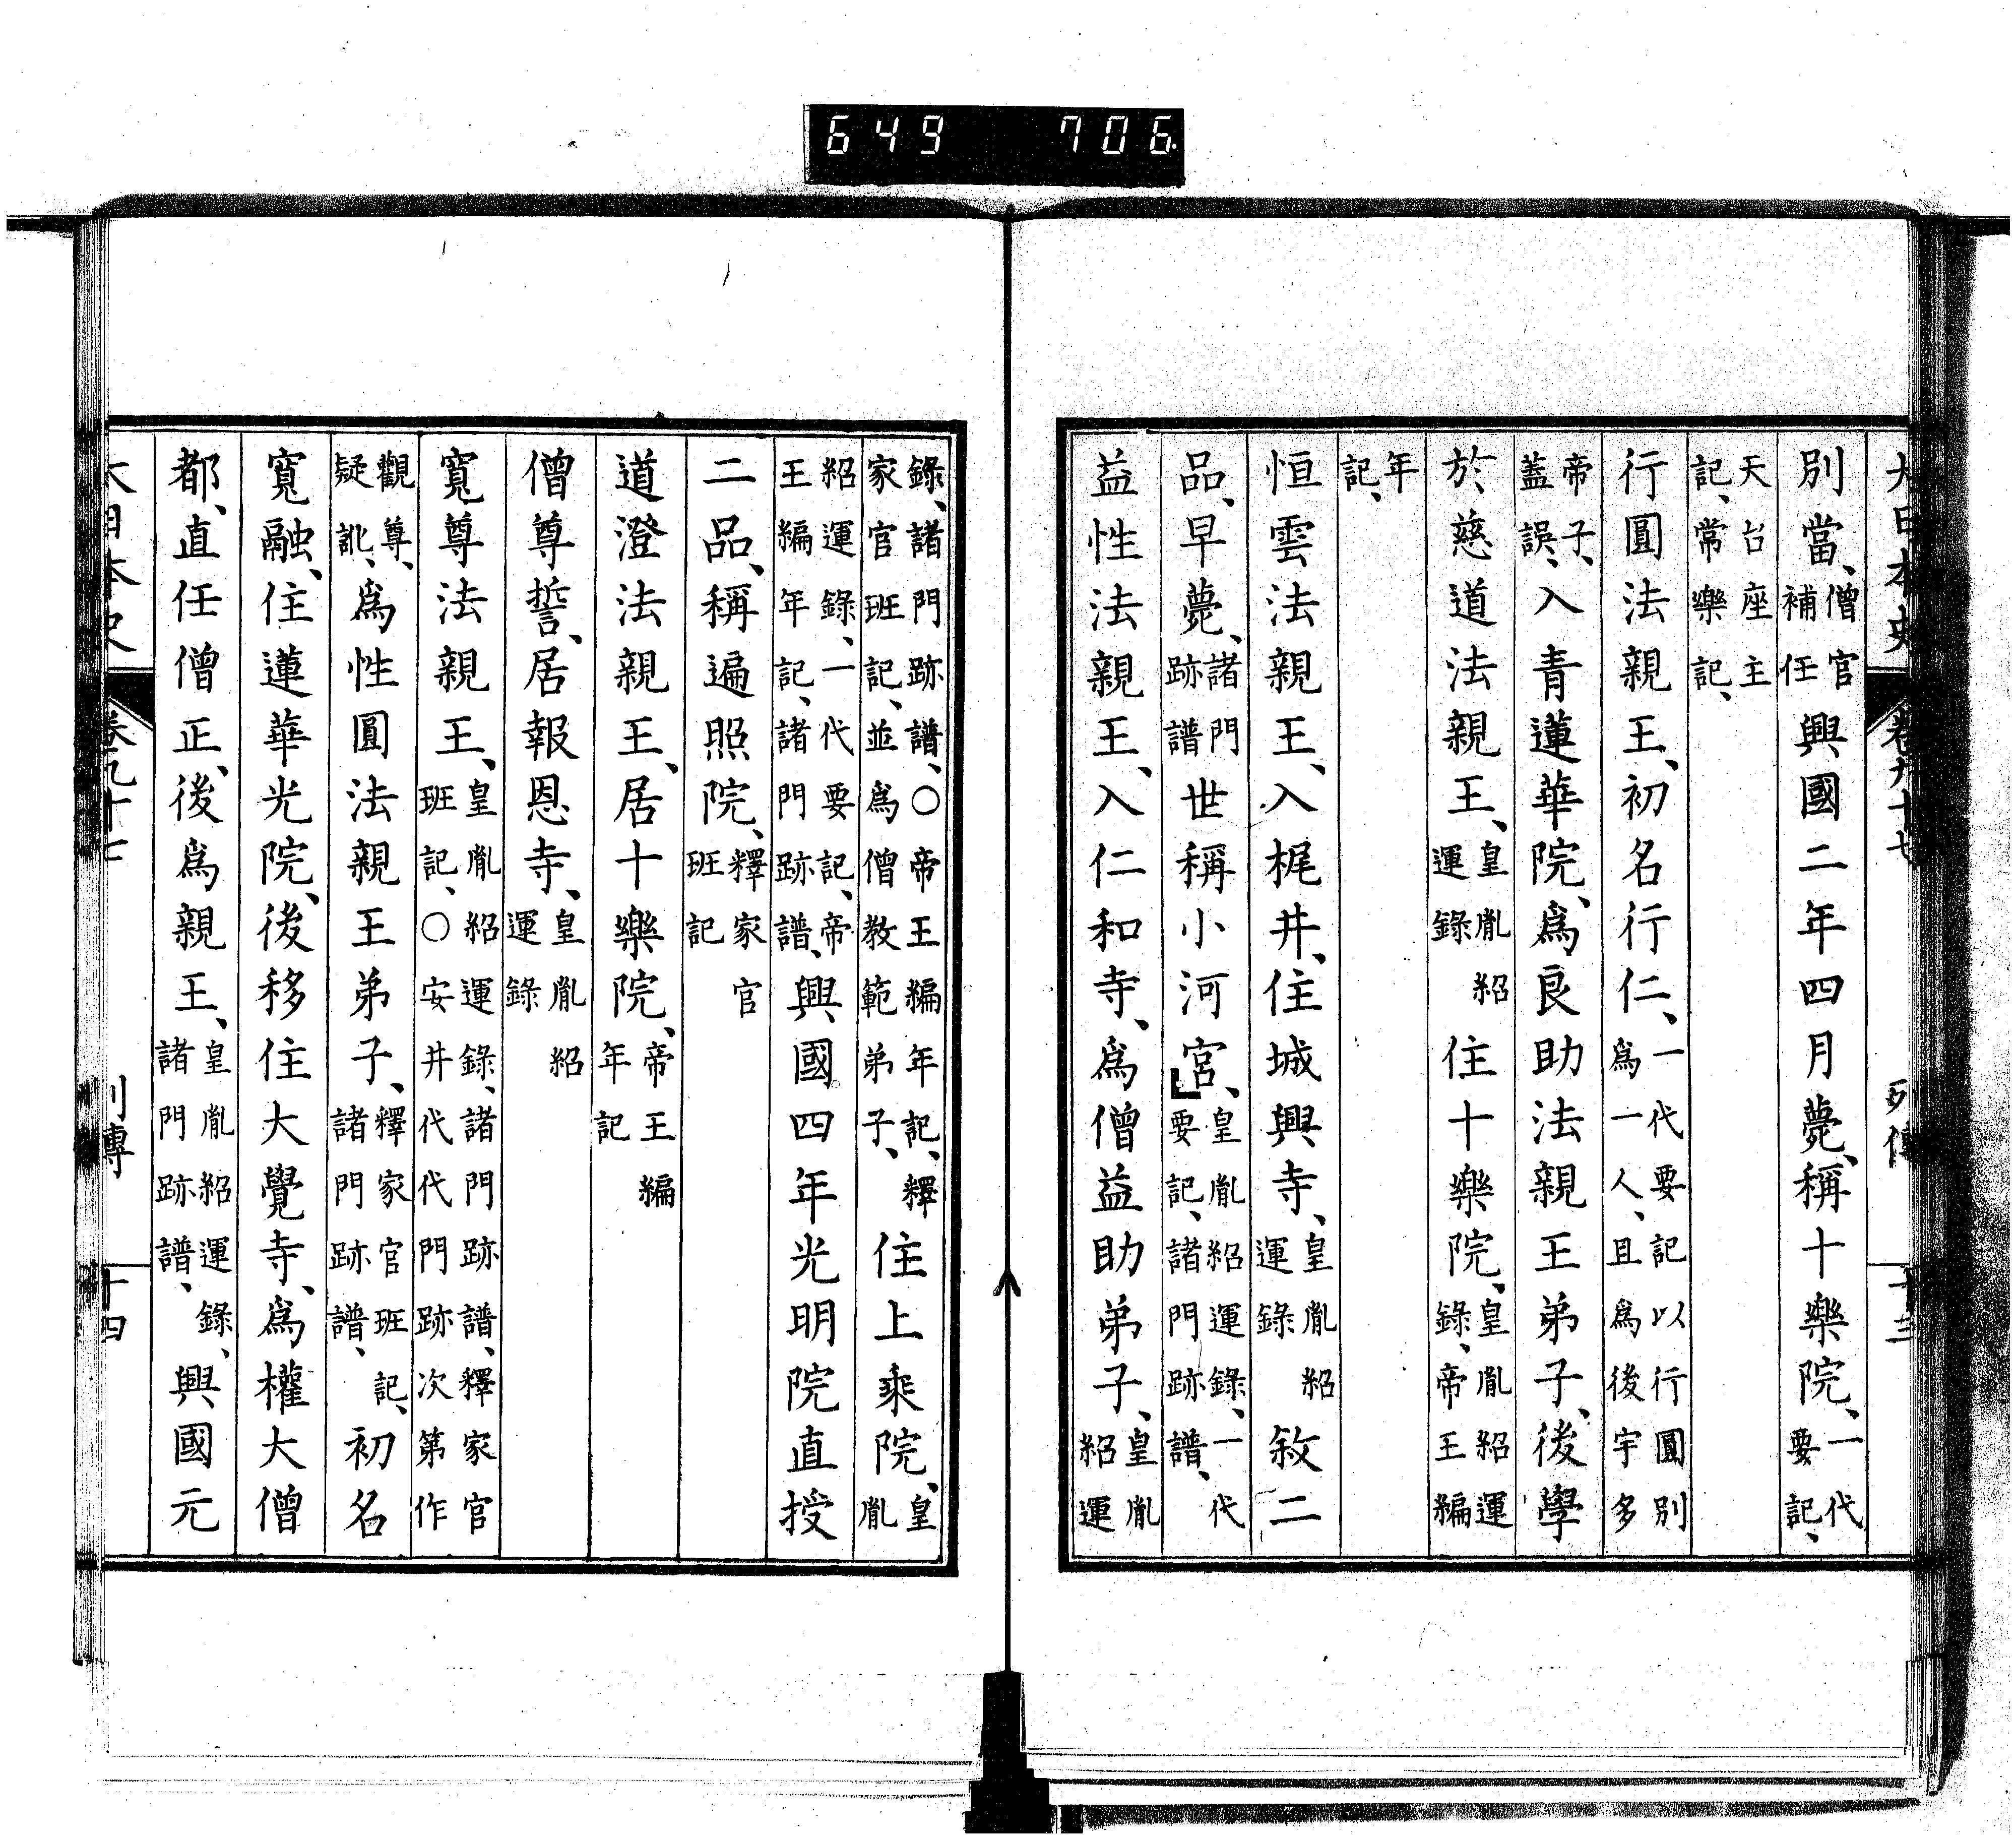 649 706
大日本史 卷九十七 列傳 十三
別當、僧官補任興國二年四月薨、稱十樂院、一代要記、
天台座主記、常樂記、
行圓法親王、初名行仁、一代要記以行圓別爲一人、且爲後宇多
帝子、蓋誤、入青蓮華院、爲良助法親王弟子、後學
於慈道法親王、皇胤紹運錄住十樂院、皇胤紹運錄、帝王編
年記、
恒雲法親王、入梶井、住城興寺、皇胤紹運錄敘二
品、早薨、諸門跡譜世稱小河宮、皇胤紹運錄、一代要記、諸門跡譜、
益性法親王、入仁和寺、爲僧益助弟子、皇胤紹運
錄、諸門跡譜、○帝王編年記、釋家官班記、並爲僧教範弟子、住上乘院、皇胤
紹運錄、一代要記、帝王編年記、諸門跡譜、興國四年光明院直授
二品、稱遍照院、釋家官班記
道澄法親王、居十樂院、帝王編年記
僧尊誓、居報恩寺、皇胤紹運錄
寬尊法親王、皇胤紹運錄、諸門跡譜、釋家官班記、○安井代代門跡次第作
觀尊、疑訛、爲性圓法親王弟子、釋家官班記、諸門跡譜、初名
寬融、住蓮華光院、後移住大覺寺、爲權大僧
都、直任僧正、後爲親王、皇胤紹運錄、諸門跡譜、興國元
大日本史 卷九十七 列傳 十四